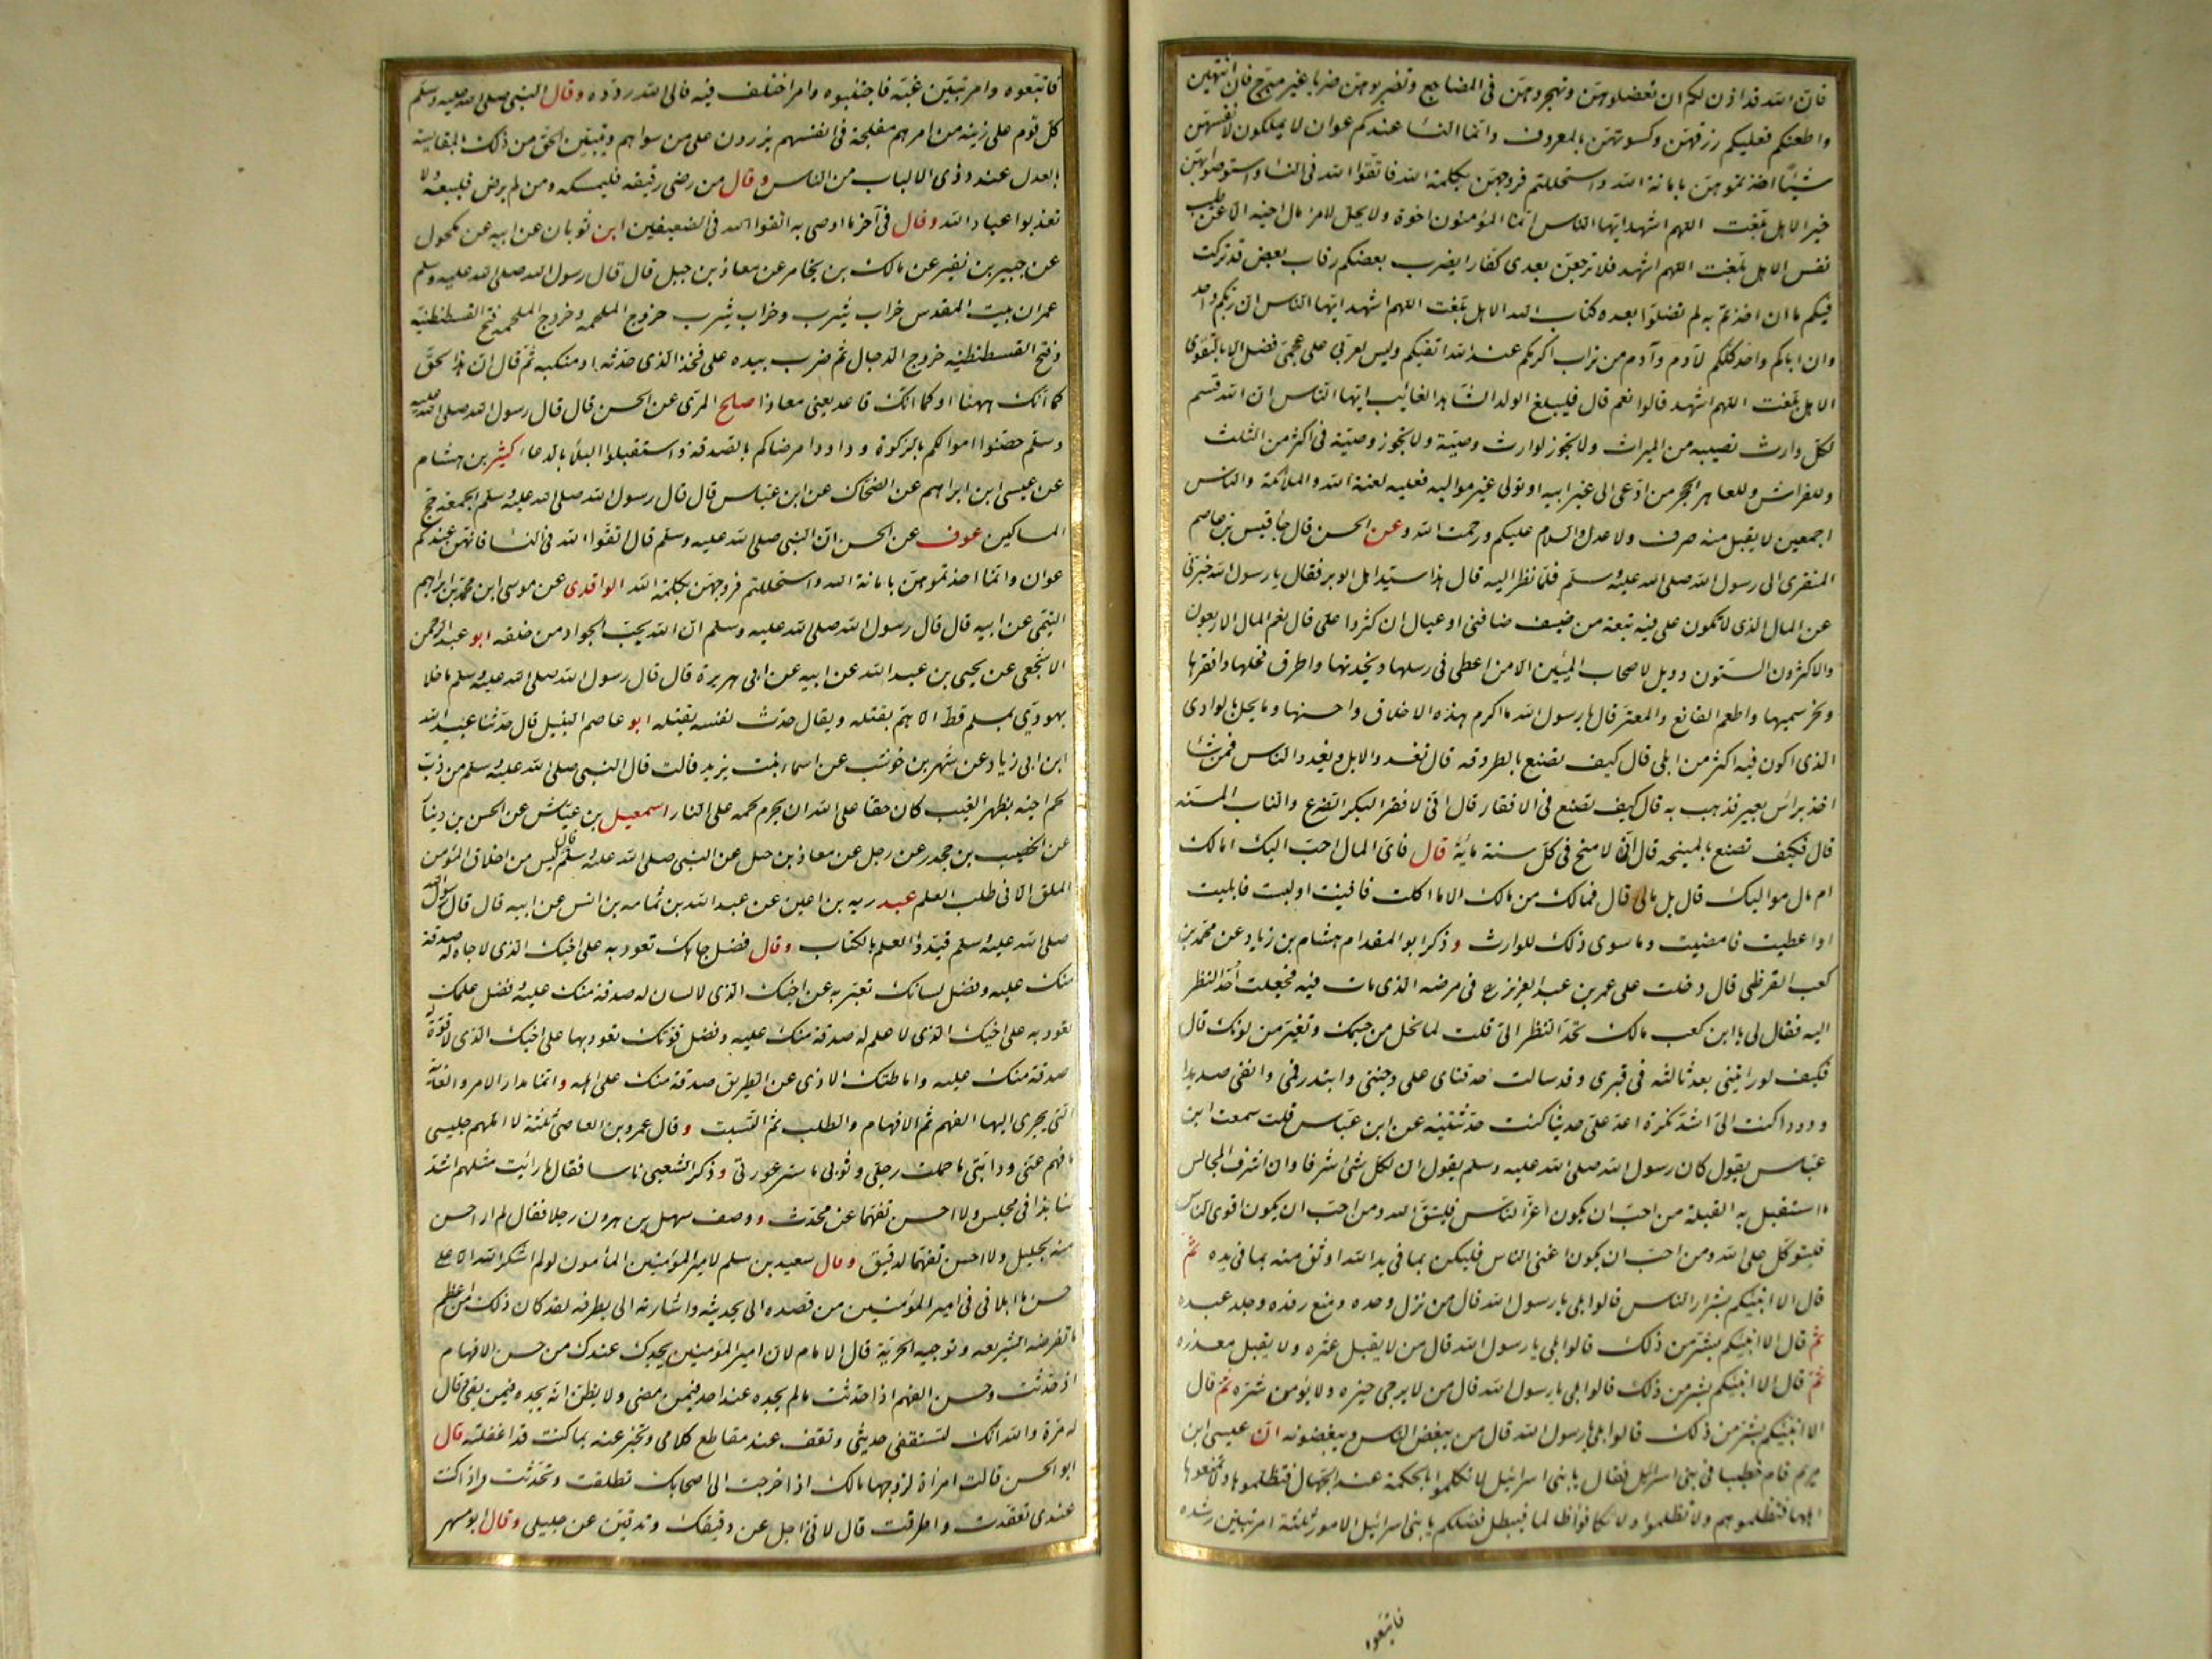 فان الله قد اذن لكم ان تعضلوهن وتهجروهن فى المضاجع وتضربوهن ضربا غير مبرح فان انتهين
واطعنكم فعليكم رزقهن وكسوتهن بالمعروف وانما النسا عندكم عوان لا يملكون لانفسهن
شيئا اخذتموهن بامانة الله واستحللتم فروجهن بكلمة الله فاتقوا الله فى النسا واستوصوا بهن
خيرا الا هل بلغت اللهم اشهد ايها الناس انما المؤمنون اخوة ولا يحل لامرء مال اخيه الا عن طيب
نفس الا هل بلغت اللهم اشهد فلا ترجعن بعدى كفارا يضرب بعضكم رقاب بعض قد تركت
فيكم ما ان اخذتم به لم تضلوا بعده كتاب الله الا هل بلغت اللهم اشهد ايها الناس ان ربكم واحد
وان اباكم واحد كلكم لآدم وآدم من تراب اكرمكم عند الله اتقيكم وليس لعربى على عجمى فضل الا بالتقوى
الا هل بلغت اللهم اشهد قالوا نعم قال فليبلغ الولد الشاهد الغائب ايها الناس ان الله قسم
لكل وارث نصيبه من الميراث ولا يجوز لوارث وصية ولا تجوز وصية فى اكثر من الثلث
وللفراش وللعاهر الحجر من ادعى الى غير ابيه او تولى غير مواليه فعليه لعنة الله والملائكة والناس
اجمعين لا يقبل منه صرف ولا عدل والسلام عليكم ورحمت الله وعن الحسن قال جا قيس بن عاصم
المنقرى الى رسول الله صلى الله عليه وسلم فلما نظر اليه قال هذا سيد اهل الوبر فقال يا رسول الله خبرنى
عن المال الذى لا تكون على فيه تبعة من ضيف ضافنى او عيال ان كثروا على قال نعم المال الاربعون
والاكثرون الستون وويل لاصحاب الميئين الا من اعطى فى رسلها ونجدتها واطرق فحلها وافقرها
ونحر سمينها واطعم القانع والمعتر قال يا رسول الله ما اكرم هذه الاخلاق واحسنها وما يحل بالوادى
الذى اكون فيه اكثر من ابلى قال كيف تصنع بالطروقه قال تغدو الابل ويغدو الناس فمن شا
اخذ براس بعير فذهب به قال كيف تصنع فى الافقار قال انى لا فقر البكر الضرع والناب المسنه
قال فكيف تصنع بالمنيحه قال انى لا منح فى كل سنة مائة قال فاى المال احب اليك امالك
ام مال مواليك قال بل مالى قال فمالك من مالك الا ما اكلت فافنيت او لبست فابليت
او اعطيت فامضيت وما سوى ذلك للوارث وذكر ابو المقدام هشام بن زياد عن محمد بن
كعب القرظى قال دخلت على عمر بن عبد العزيز رع فى مرضه الذى مات فيه فجعلت احد النظر
اليه فقال لى يا ابن كعب مالك تحد النظر الى قلت لما نحل من جسمك وتغير من لونك قال
فكيف لو رايتنى بعد ثالثه فى قبرى وقد سالت حدقتاى على وجنتى وابتدر فمى وانفى صديدا
ودودا كنت الى اشد نكرة اعد على حديثا كنت حدثتنيه عن ابن عباس قلت سمعت ابن
عباس يقول كان رسول الله صلى الله عليه وسلم يقول ان لكل شئ شرفا وان اشرف المجالس
ما استقبل به القبلة من احب ان يكون اعز الناس فليتق الله ومن احب ان يكون اقوى الناس
فليتوكل على الله ومن احب ان يكون اغنى الناس فليكن بما فى يد الله اوثق منه بما فى يده ثم
قال الا انبئكم بشرار الناس قالوا بلى يا رسول الله قال من نزل وحده ومنع رفده وجلد عبده
ثم قال الا انبئكم بشر من ذلك قالوا بلى يا رسول الله قال من لا يقبل عثره ولا يقبل معذره
ثم قال الا انبئكم بشر من ذلك قالوا بلى يا رسول الله قال من لا يرجى خيره ولا يؤمن شره ثم قال
الا انبئكم بشر من ذلك قالوا بلى يا رسول الله قال من يبغض الناس ويبغضونه ان عيسى ابن
مريم قام خطيبا فى بنى اسرائيل فقال يا بنى اسرائيل لا تكلموا بالحكمة عند الجهال فتظلموها ولا تمنعوها
اهلها فتظلموهم ولا تظلموا ولا تكافوا ظالما فيبطل فضلكم يا بنى اسرائيل الامور ثلثة امر تبين رشده
فاتبعوا
فاتبعوه وامر تبين غيه فاجتنبوه وامر اختلف فيه فالى الله ردوه وقال النبى صلى الله عليه وسلم
كل قوم على زينة من امرهم مفلجة فى انفسهم يزرون على من سواهم ويتبين الحق من ذلك بالمقايسة
بالعدل عند ذوى الالباب من الناس وقال من رضى رقيقه فليمسكه ومن لم يرض فليبعه ولا
تعذبوا عباد الله وقال فى آخر ما اوصى به اتقوا الله فى الضعيفين ابن ثوبان عن ابيه عن مكحول
عن جبير بن نفير عن مالك بن يخامر عن معاذ بن جبل قال قال رسول الله صلى الله عليه وسلم
عمران بيت المقدس خراب يثرب وخراب يثرب خروج الملحمة وخروج الملحمه فتح القسطنطنية
وفتح القسطنطنيه خروج الدجال ثم ضرب بيده على فخذ الذى حدثه او منكبه ثم قال ان هذا لحق
كما انك ههنا او كما انك قاعد يعنى معاذا صلح المرى عن الحسن قال قال رسول الله صلى الله عليه
وسلم حصنوا اموالكم بالزكوة وداووا مرضاكم بالصدقة واستقبلوا البلا بالدعا كثير بن هشام
عن عيسى ابن ابراهيم عن الضحاك عن ابن عباس قال قال رسول الله صلى الله عليه وسلم الجمعة حج
المساكين عوف عن الحسن ان النبى صلى الله عليه وسلم قال اتقوا الله فى النسا فانهن عندكم
عوان وانما اخذتموهن بامانة الله واستحللتم فروجهن بكلمة الله الواقدى عن موسى ابن محمد بن ابراهيم
التيمى عن ابيه قال قال رسول الله صلى الله عليه وسلم ان الله يحب الجواد من خلقه ابو عبد الرحمن
الاشجعى عن يحيى بن عبد الله عن ابيه عن ابى هريرة قال قال رسول الله صلى الله عليه وسلم ما خلا
يهودى بمسلم قط الا هم بقتله ويقال حدث نفسه بقتله ابو عاصم النبيل قال حدثنا عبيد الله
ابن ابى زياد عن شهر بن حوشب عن اسماء بنت يزيد قالت قال النبى صلى الله عليه وسلم من ذب
لحم اخيه بظهر الغيب كان حقا على الله ان يحرم لحمه على النار اسمعيل بن عياش عن الحسن بن دينار
عن الخصيب بن جحدر عن رجل عن معاذ بن جبل عن النبى صلى الله عليه وسلم قال ليس من اخلاق المؤمن
الملق الا فى طلب العلم عبد ربه بن اعين عن عبد الله بن ثمامه بن انس عن ابيه قال قال رسول الله
صلى الله عليه وسلم قيدوا العلم بالكتاب وقال فضل جاهك تعود به على اخيك الذى لا جاه له صدقة
منك عليه وفضل لسانك تعبر به عن اخيك الذى لا لسان له صدقة منك عليه وفضل علمك
تعود به على اخيك الذى لا علم له صدقة منك عليه وفضل قوتك تعود بها على اخيك الذى لا قوة له
صدقة منك عليه واماطتك الاذى عن الطريق صدقة منك على اهله وانما مدار الامر والغاية
التى يجرى اليها الفهم ثم الافهام والطلب ثم التثبت وقال عمرو بن العاصى ثلثة لا املهم جليسى
ما فهم عنى ودابتى ما حملت رجلى وثوبى ما ستر عورتى وذكر الشعبى ناسا فقال ما رايت مثلهم اشد
تنابذا فى مجلس ولا احسن تفهما عن محدث ووصف سهل بن هرون رجلا فقال لم ار احسن
منه بجليل ولا احسن تفهما لدقيق وقال سعيد بن سلم لامير المؤمنين المأمون لو لم اشكر الله الا على
حسن ما ابلانى فى امير المؤمنين من قصده الى بحديثه واشارته الى بطرفه لقد كان ذلك من اعظم
ما تفرضه الشريعه وتوجبه الحرية قال الامام لان امير المؤمنين يجدك عندك من حسن الافهام
اذ حدثت وحسن الفهم اذا حدثت ما لم يجده عند احد فيمن مضى ولا يظن انه يجده فيمن بقى وقال
له مرة والله انك لتستقفى حديثى وتقف عند مقاطع كلامى وتخبر عنه بما كنت قد اغفلته قال
ابو الحسن قالت امراة لزوجها مالك اذا خرجت الى اصحابك تطلقت وتحدثت واذا كنت
عندى تعقدت واطرقت قال لانى اجل عن دقيقك وتدقين عن جليلى وقال ابو مسهر